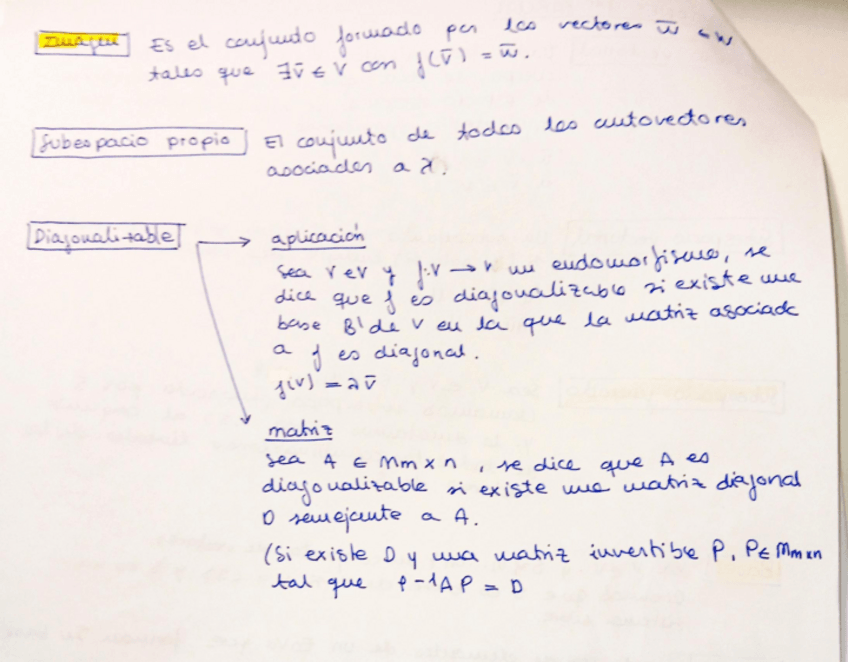 Imagen Es el conjunto formado por los vectores w̄ ∈ W
tales que ∃v̄ ∈ V con f(v̄) = w̄.
Subespacio propio El conjunto de todos los autovectores
asociados a λ.
Diagonalizable → aplicación
Sea v ∈ V y f: V → V un endomorfismo, se
dice que f es diagonalizable si existe una
base B' de V en la que la matriz asociada
a f es diagonal.
f(v) = λv̄
matriz
Sea A ∈ Mm×n, se dice que A es
diagonalizable si existe una matriz diagonal
D semejante a A.
(Si existe D y una matriz invertible P, P∈ Mm×n
tal que P-1AP = D